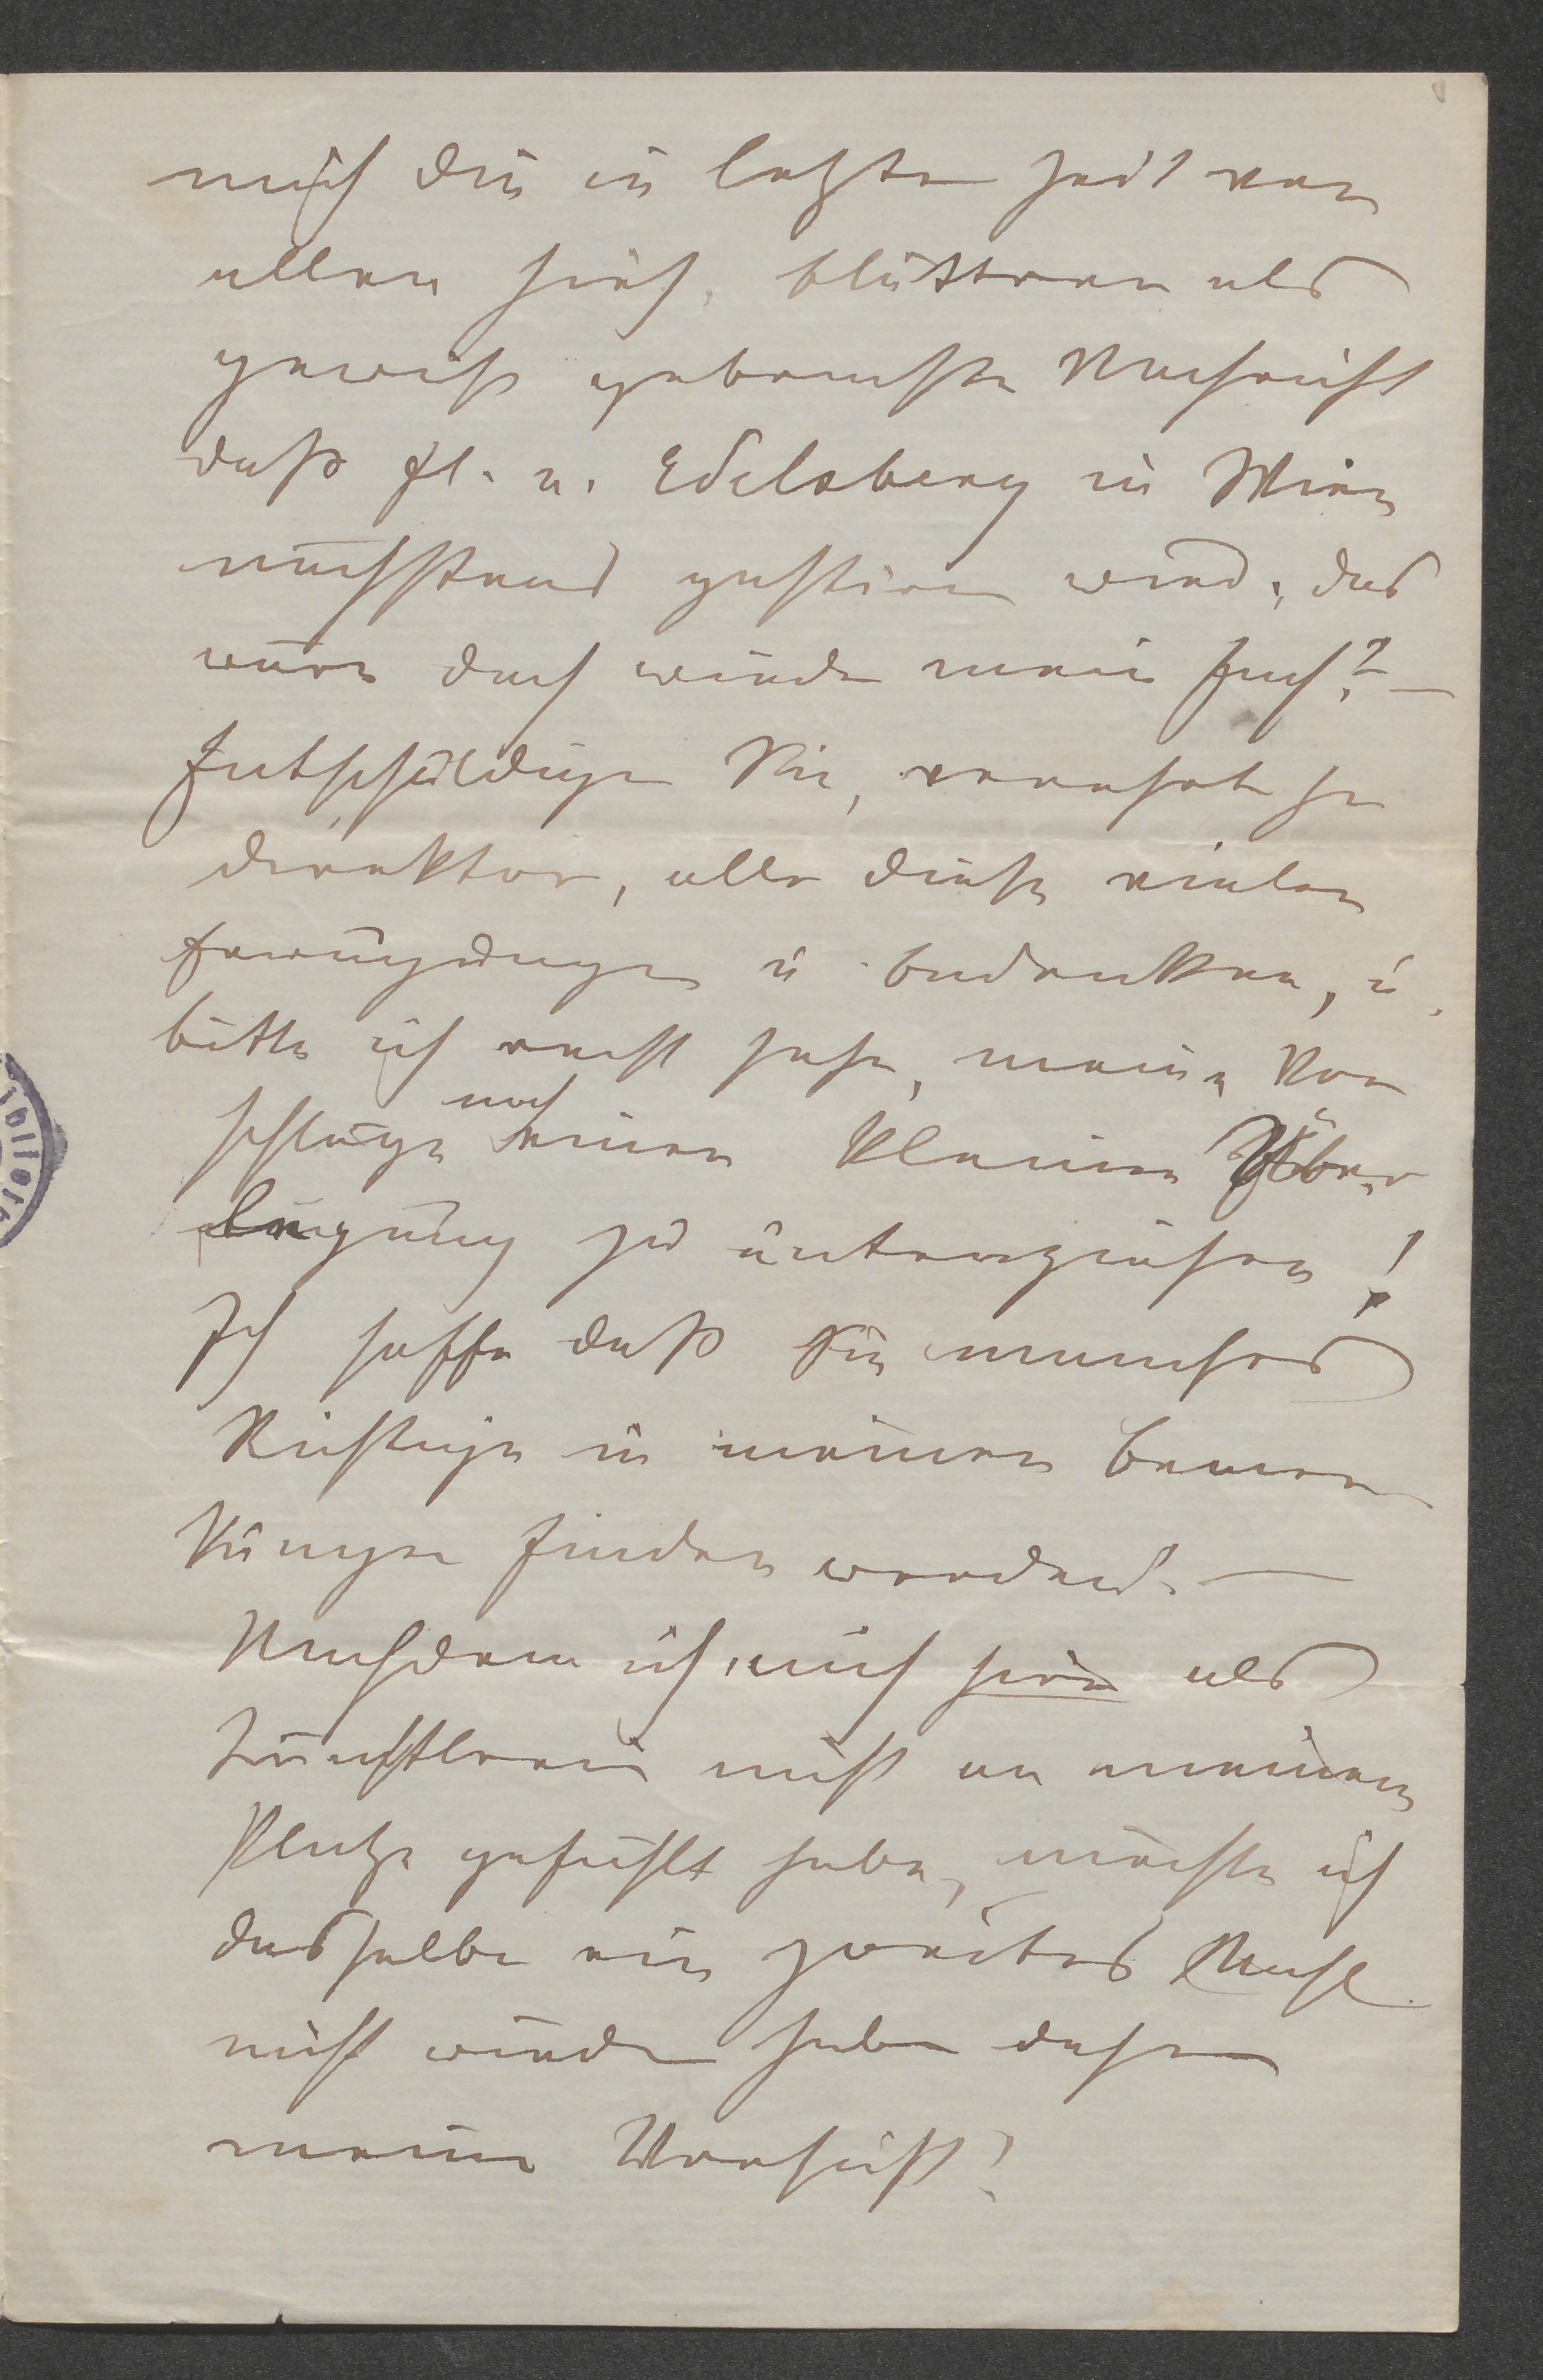 mich die in letzter Zeit von
allen hies. Blättern als
gewiß gebrachte Nachricht
daß Frl. v. Edelsberg in Wien
nächstens gastiren wird, das
wäre doch wieder mein Fach? –
Entschuldigen Sie, verehrter Hr
Direktor, alle diese vielen
Erwägungen u Bedenken, u.
bitte ich recht sehr, meine Vor
schläge noch einer kleinen Über
legung zu unterziehen!
Ich hoffe daß Sie manches
Richtige in meinen Bemer
kungen finden werden. –
Nachdem ich mich hier als
Künstlerin nicht an meinem
Platze gefühlt habe, möchte ich
dasselbe ein zweites Mahl
nicht wieder haben daher
meine Vorsicht!